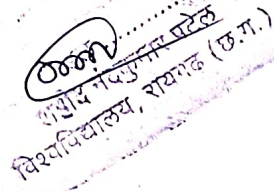 नंदकुमार पटेल
विश्वविद्यालय, रायगढ़ (छ.ग.)